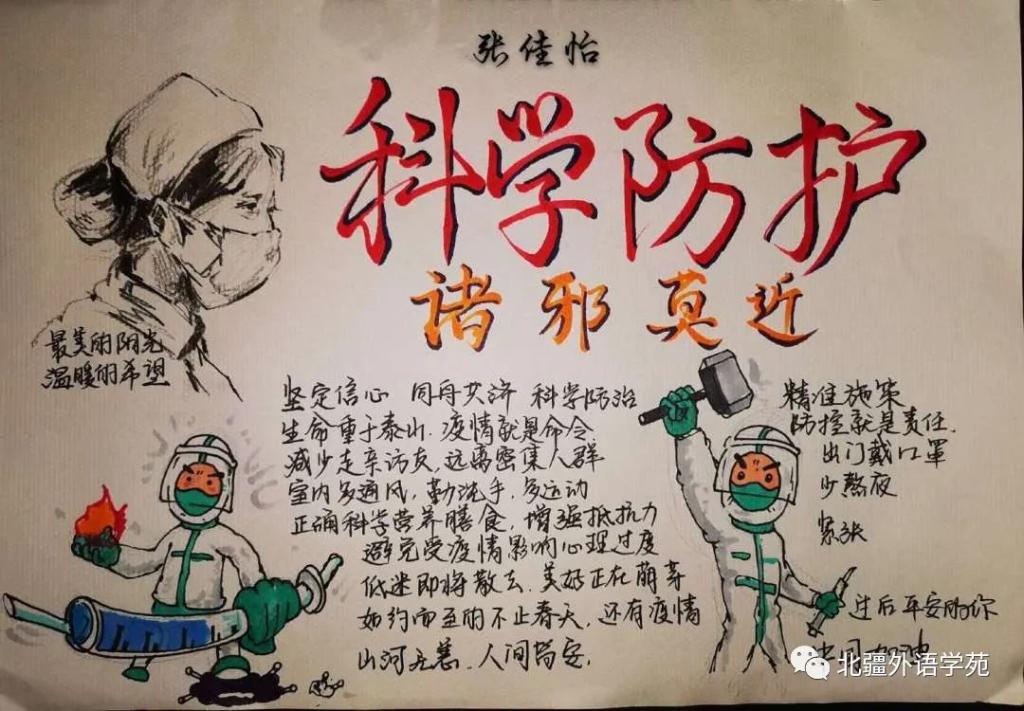 张佳怡
科学防护
诸邪莫近
最美的阳光
温暖的希望
坚定信心 同舟共济 科学防治
生命重于泰山.疫情就是命令
减少走亲访友,远离密集人群
室内多通风,勤洗手,多运动
正确科学营养膳食,增强抵抗力
避免受疫情影响心理过度
低迷即将散去.美好正在萌芽
如约而至的不止春天,还有疫情
山河无恙.人间皆安.
精准施策
防控就是责任.
出门戴口罩
少熬夜
紧张
过后平安的你
中国加油
北疆外语学苑